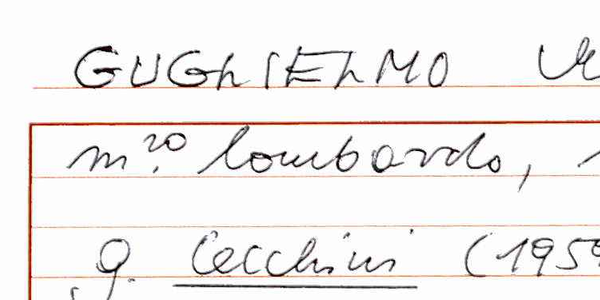 GUGLIELMO
m.ro lombardo,
g. Cecchini (1959